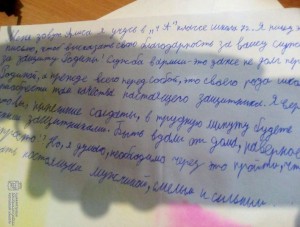 Меня зовут Алиса я учусь в "4 А" классе школы №. Я пишу это
письмо, что высказать свою благодарность за вашу службу
за защиту Родины! Служба в армии-это даже не долг перед
Родиной, а прежде всего перед собой, это своего рода школа
качества настоящего защитника. Я
нынешние солдаты, в трудную минуту будете
защитниками. Быть вдали от дома, наверное
Но, я думаю, необходимо через это пройти, что
настоящим мужчиной, смелым и сильным